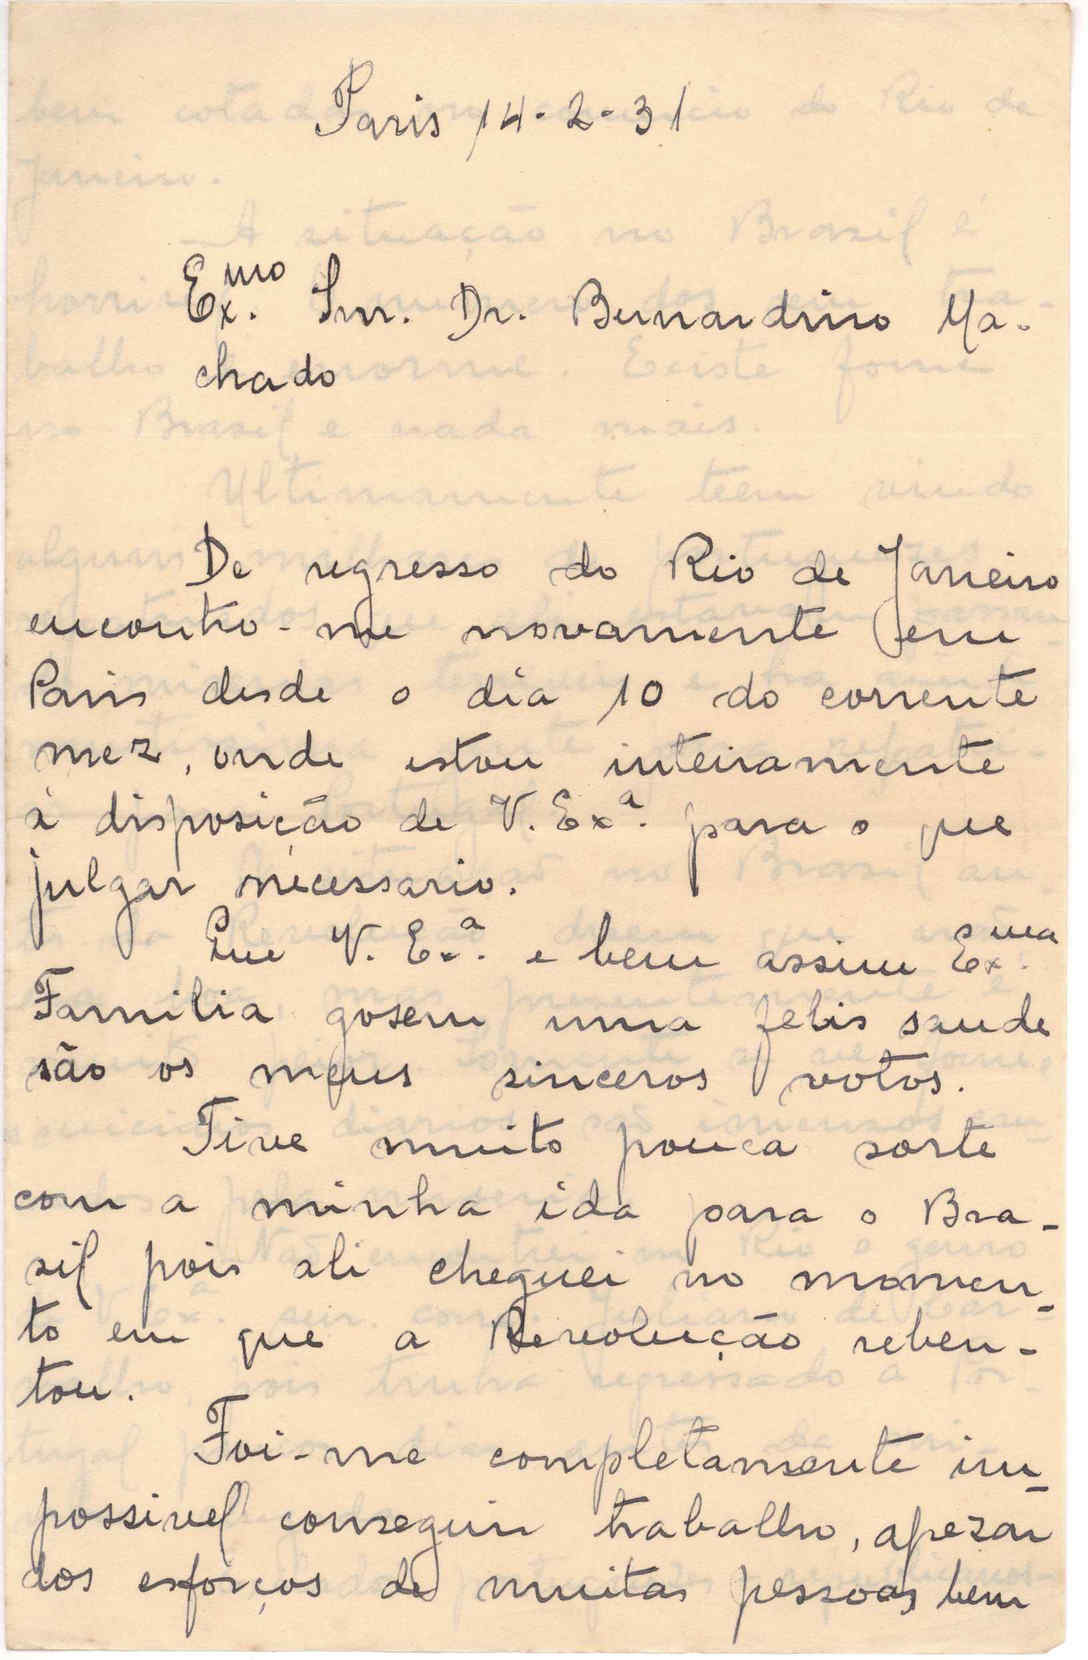 Paris 14-2-31
Exmo. Snr. Dr. Bernardino Ma-
chado
De regresso do Rio de Janeiro
encontro-me novamente em
Paris desde o dia 10 do corrente
mez, onde estou inteiramente
á disposição de V. Exª. para o que
julgar necessario.
Que V. Exª. e bem assim Exma.
Familia gosem uma felis saude
são os meus sinceros votos.
Tive muito pouca sorte
com a minha ida para o Bra-
sil pois ali cheguei no momen-
to em que a Revolução reben-
tou.
Foi-me completamente im-
possivel conseguir trabalho, apezar
dos esforços de muitas pessoas bem